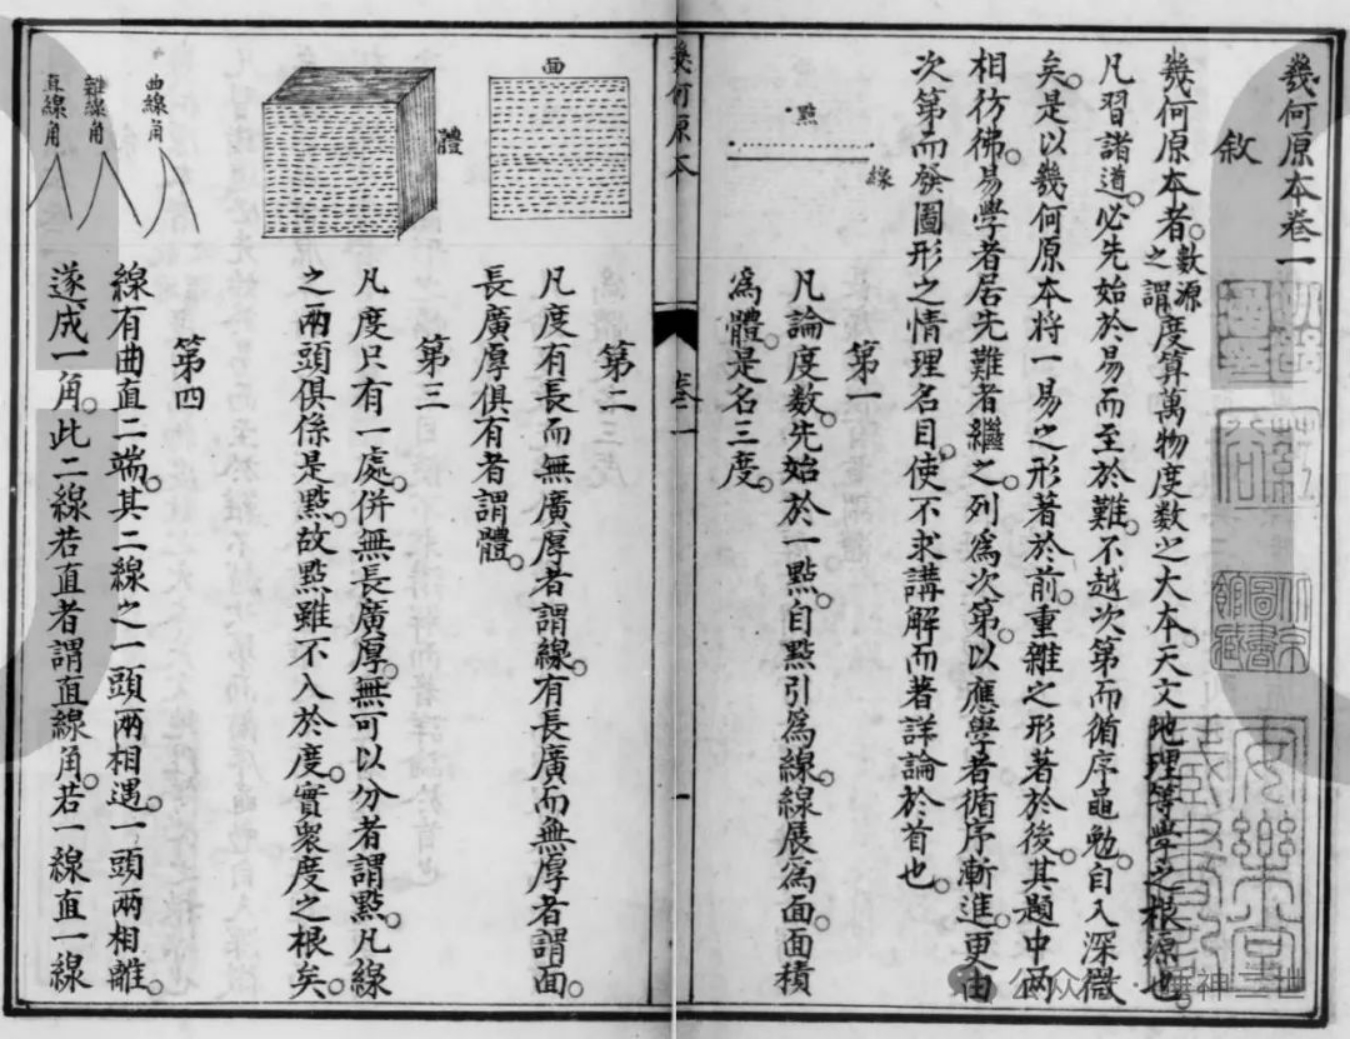 幾何原本卷一
敘
幾何原本者數源之謂度算萬物度數之大本天文地理等學之根源也
凡習諸道必先始於易而至於難不越次第而循序黽勉自入深微
矣是以幾何原本將一易之形著於前重雜之形著於後其題中兩
相彷彿易學者居先難者繼之列爲次第以應學者循序漸進更由
次第而發圖形之情理名目使不求講解而著詳論於首也
點
線
第一
凡論度數先始於一點自點引爲線線展爲面面積
爲體是名三度
幾何原本
卷一
一
面
體
第二
凡度有長而無廣厚者謂線有長廣而無厚者謂面
長廣厚俱有者謂體
第三
凡度只有一處併無長廣厚無可以分者謂點凡線
之兩頭俱係是點故點雖不入於度實衆度之根矣
曲線角
雜線角
直線角
第四
線有曲直二端其二線之一頭兩相遇一頭兩相離
遂成一角此二線若直者謂直線角若一線直一線
公众
神三世